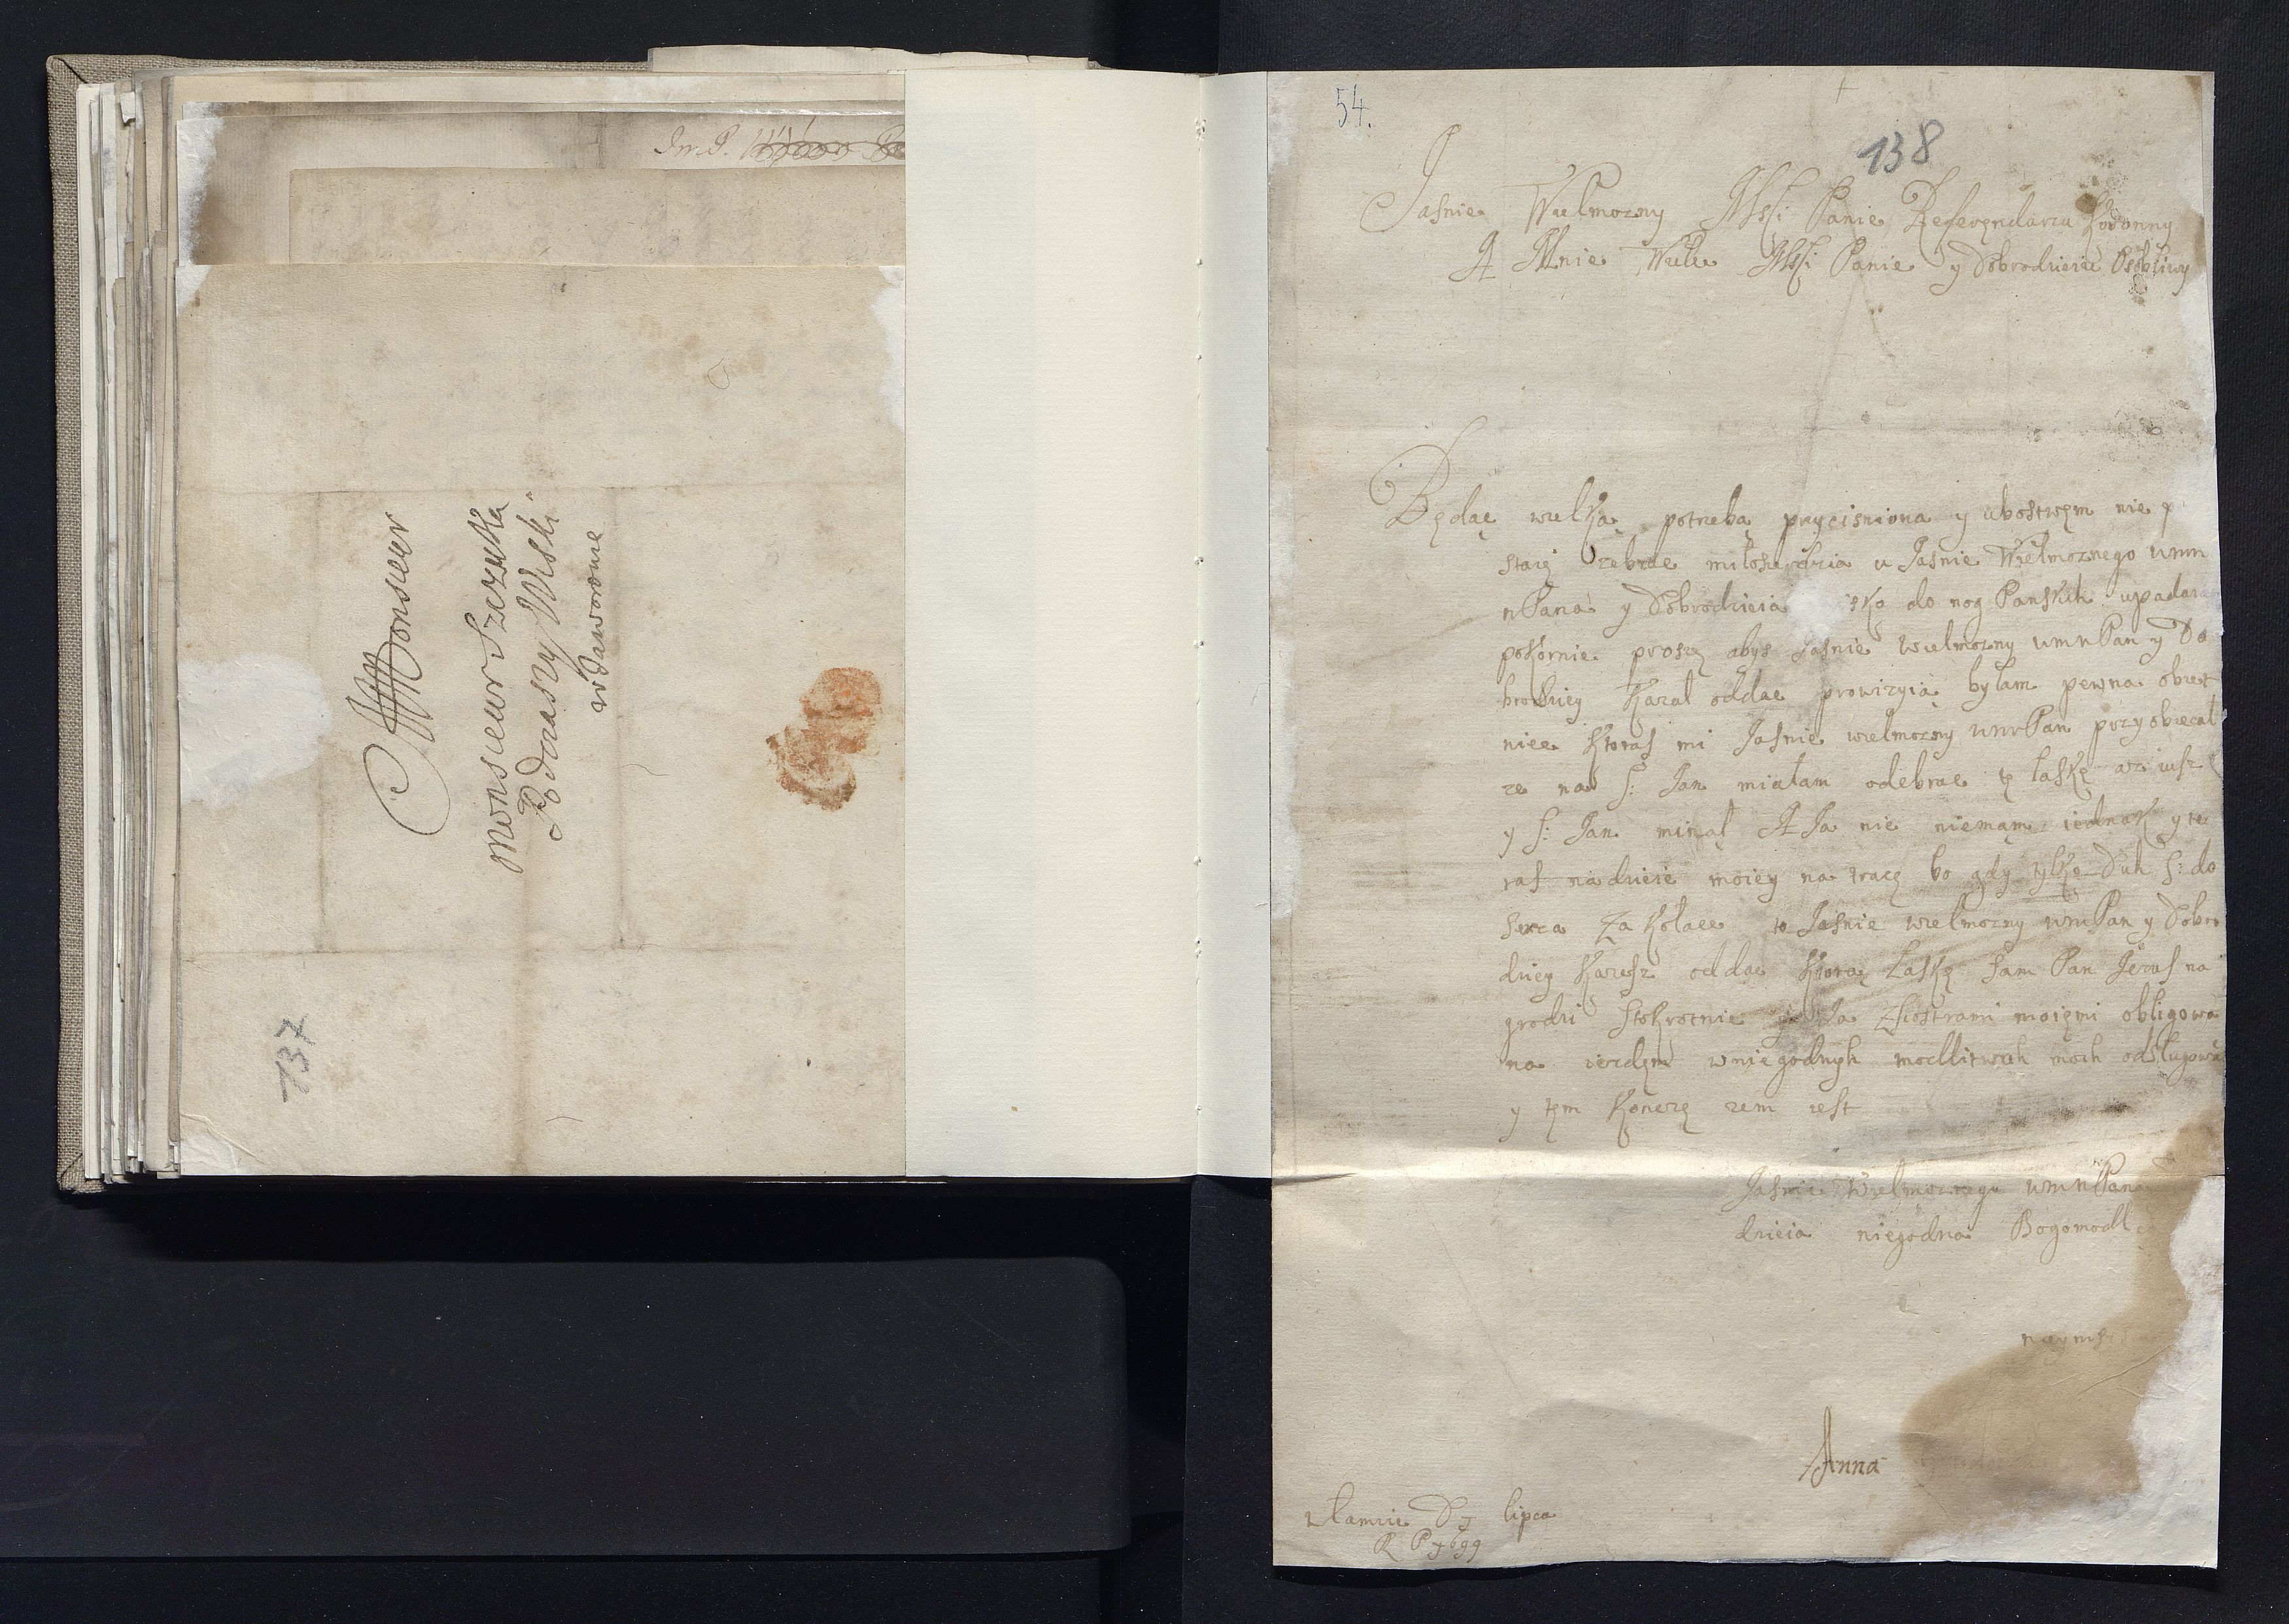 Im P.
Monsieur
Monsieur Szczuka
Podczaszy Wiski
w Jaworowie
137
54.
138
Jasnie Wielmozny Mssi Panie Referendarzu Koronny
A Mnie Wielce Mssi Panie y Dobrodzieiu Osobliwy
Będąc wielką potrebą pryciśniona y ubostwęm nie p
staię zebrac miłosierdzia u Jasnie Wielmoznego umm
nPana y Dobrodzieia do nog Panskich upadaiąc
pokornie proszę abys Jasnie wielmozny umnPan y Do
brodziey Kazał oddac prowizyią byłam pewna obiet
nice Ktoras mi Jasnie wielmozny umnPan przyobiecał
ze na S: Jan miałam odebrac tę łaskę az iusz
y S: Jan minął A Ja nic niemam iednak y te
ras nadzieie moiey na tracę bo gdy tylko Duh S: do
serca Zakołace to Jasnie wielmozny umnPan y Dobro
dziey Karzesz oddac Ktorą Łaskę Sam Pan Jezus na
grodzi stokrotnie Ja Zsiostrami moięmi obligowa
na iezdęm wniegodnyh modlitwah moih odsługowa
y tęm Konczę zem iest
Jasnie Wielmoznego umnPana
dzieia niegodna Bogomodl
nayniszsza
Anna
Lipca
R P 1699